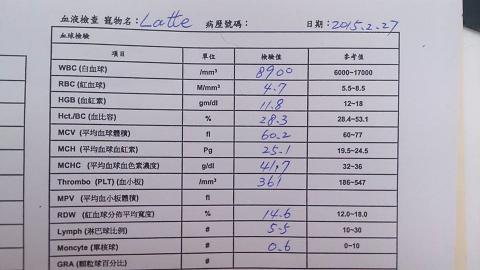 血液檢查 寵物名：Latte 病歷號碼： 日期：2015.2.27
血球檢驗
項目 單位 檢驗值 參考值
WBC (白血球) /mm³ 8900 6000~17000
RBC (紅血球) M/mm³ 4.7 5.5~8.5
HGB (血紅素) gm/dl 11.8 12~18
Hct./BC (血比容) % 28.3 28.4~53.1
MCV (平均血球體積) fl 60.2 60~77
MCH (平均血球血紅素) Pg 25.1 19.5~24.5
MCHC (平均血球血色素濃度) g/dl 41.7 32~36
Thrombo (PLT) (血小板) /mm³ 361 186~547
MPV (平均血小板體積) fl
RDW (紅血球分佈平均寬度) % 14.6 12.0~18.0
Lymph (淋巴球比例) # 5.5 10~30
Moncyte (單核球) # 0.6 0~10
GRA (顆粒球百分比) #